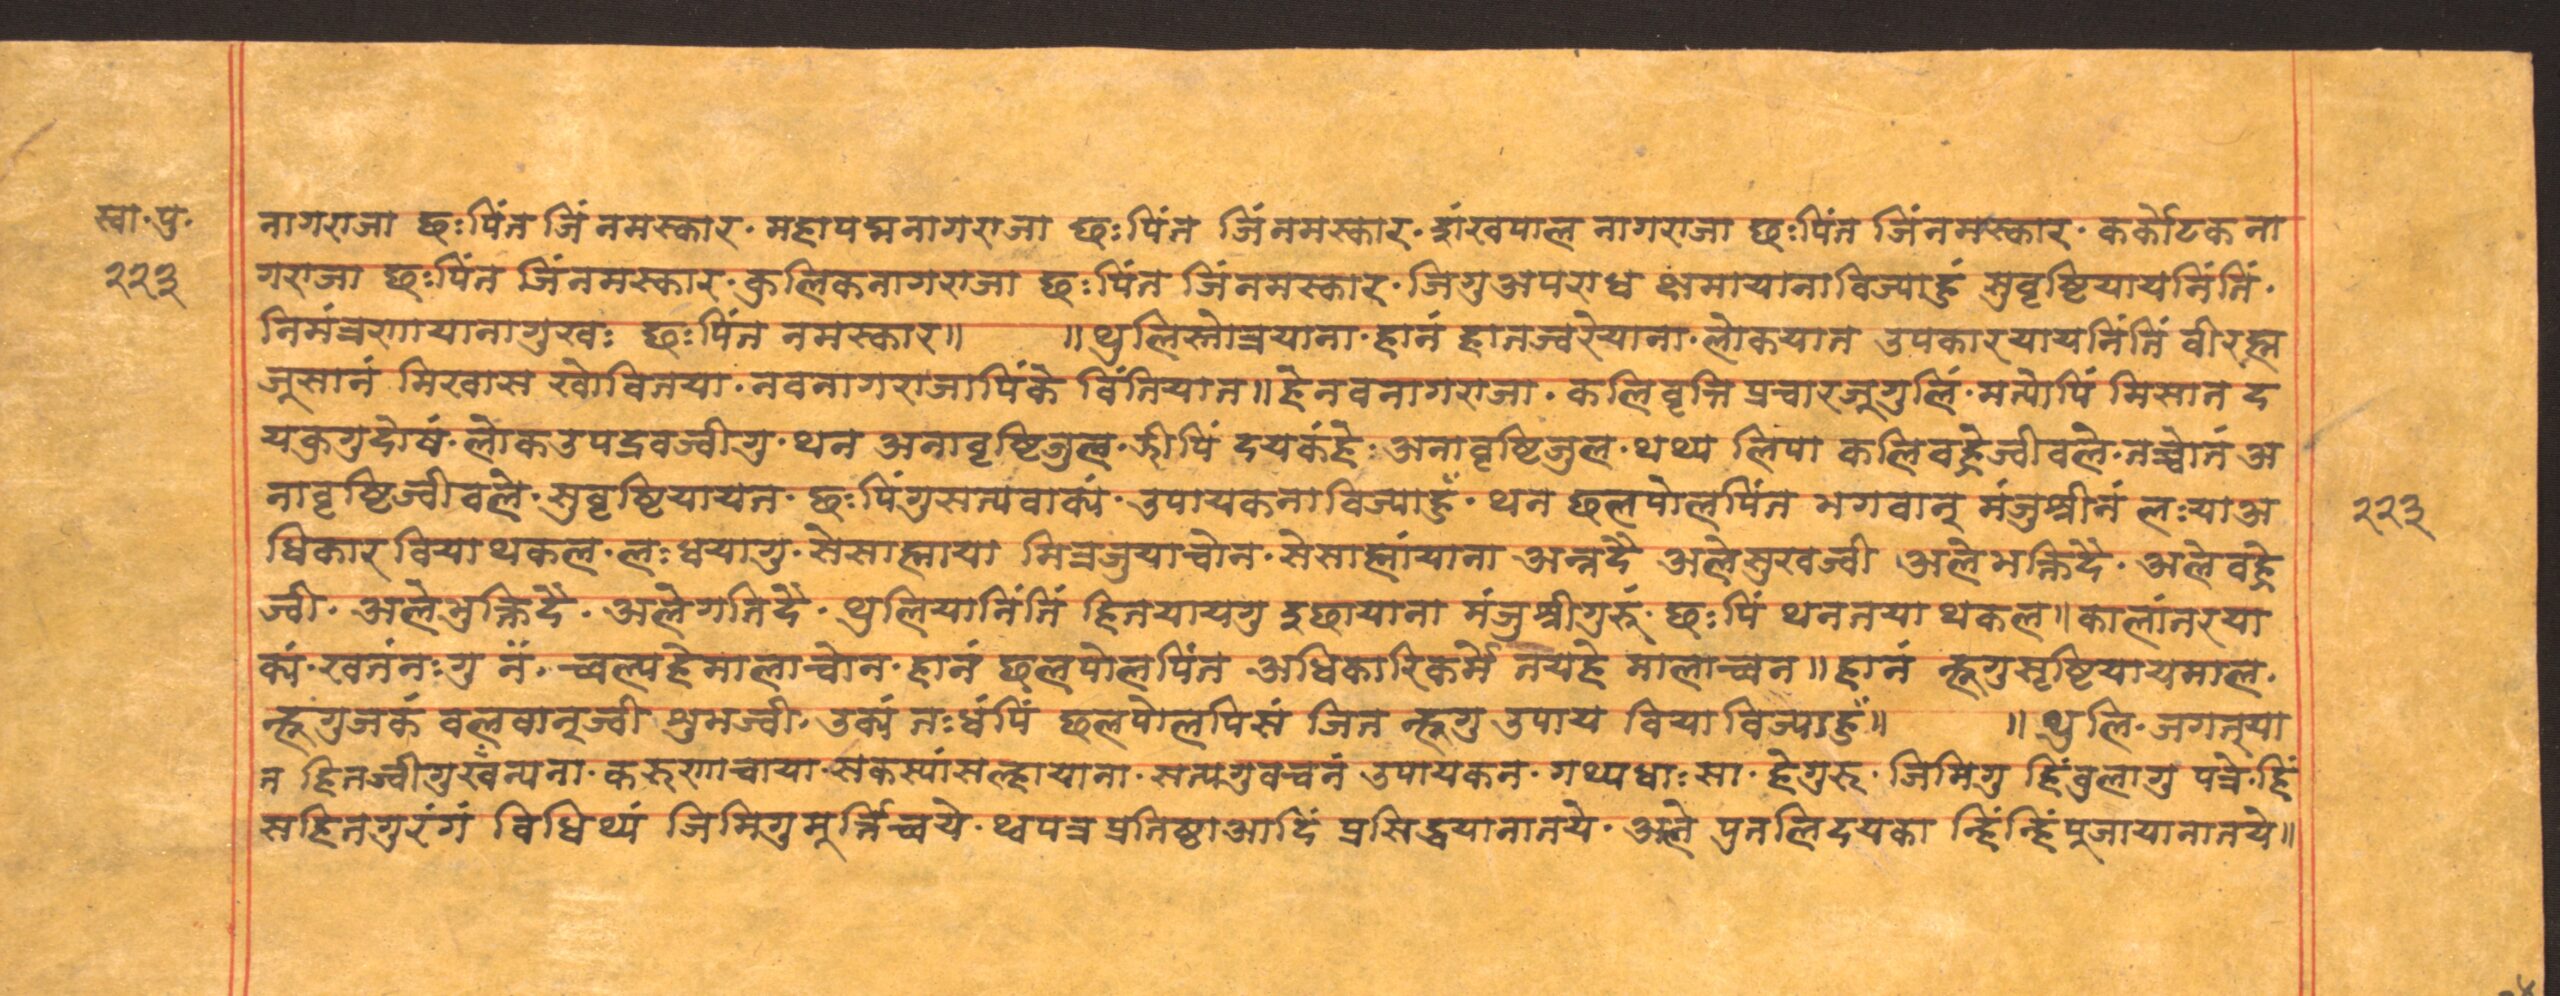 स्वा·पु·
२२३
नागराजा छःपिंत जिं नमस्कार· महापद्मनागराजा छःपिंत जिंनमस्कार· शंखपाल नागराजा छःपिंत जिंनमस्कार· कर्कोटक ना
गराजा छःपिंत जिंनमस्कार· कुलिकनागराजा छःपिंत जिंनमस्कार· जिगुअपराध क्षमायानाविज्याहुं सुवृष्टियायनिंतिं·
निमंत्रणायानागुखः छःपिंत नमस्कार॥ ॥थुलिस्तोत्रयाना· हानं हातज्वरेयाना· लोकयात उपकारयायनिंतिं वीरह्म
जुसानं मिखास खोवितया· नवनागराजापिंके विंतियात॥हे नवनागराजा· कलिवृत्ति प्रचारजुगुलिं· मत्योपिं मिसात द
यकुगुदोषं· लोकउपद्रवज्वीगु· थन अनावृष्टिजुल· झीपिं दयकंहे अनावृष्टिजुल· थथ्य लिपा कलिवहेज्वीवले· तच्वोतं अ
नावृष्टिज्वीवले· सुवृष्टियायत· छःपिंगुसत्यवाक्यं· उपायकनाविज्याहुँ· थन छलपोलपिंत भगवान् मंजुश्रीनं लःयाअ
धिकार वियाथकल· लःधयागु· सेसाह्नाया मित्रजुयाच्वोन· सेसाह्नांयाना अन्नदै अलेसुखज्वी अलेभक्तिदै· अलेवहे
ज्वी· अलेभुक्तिदै· अलेगतिदै· थुलियानिंतिं हितयायगु इछायाना मंजुश्रीगुरुं· छःपिं थनतया थकल॥कालांतरया
क्यं· खतंनःगु नँ· च्वलप्यहेमालाच्वोन· हानं छलपोलपिंत अधिकारिकमे तयहे मालाच्वन॥हानं न्हूगुसृष्टियायमाल·
न्हूगुजकं वलवान्ज्वी शुभज्वी· उक्यं तःधंपिं छलपोलपिसं जित न्हूगु उपाय वियाविज्याहुँ॥ ॥थुलि· जगत्‌या
त हितज्वीगुखँन्यना· करुणाचाया सकस्यांसल्हायाना· सत्यगुवचनं उपायकन· गथ्यधाःसा· हेगुरु· जिमिगु हिंवुलागु पत्रे· हिं
सहितगुरंगं विधिथ्यं जिमिगुमूर्त्तिच्वये· थ्वपत्र प्रतिष्ठाआदिं प्रसिद्धयानातये· अले पुतलिदयका न्हिंन्हिं पूजायानातये॥
२२३